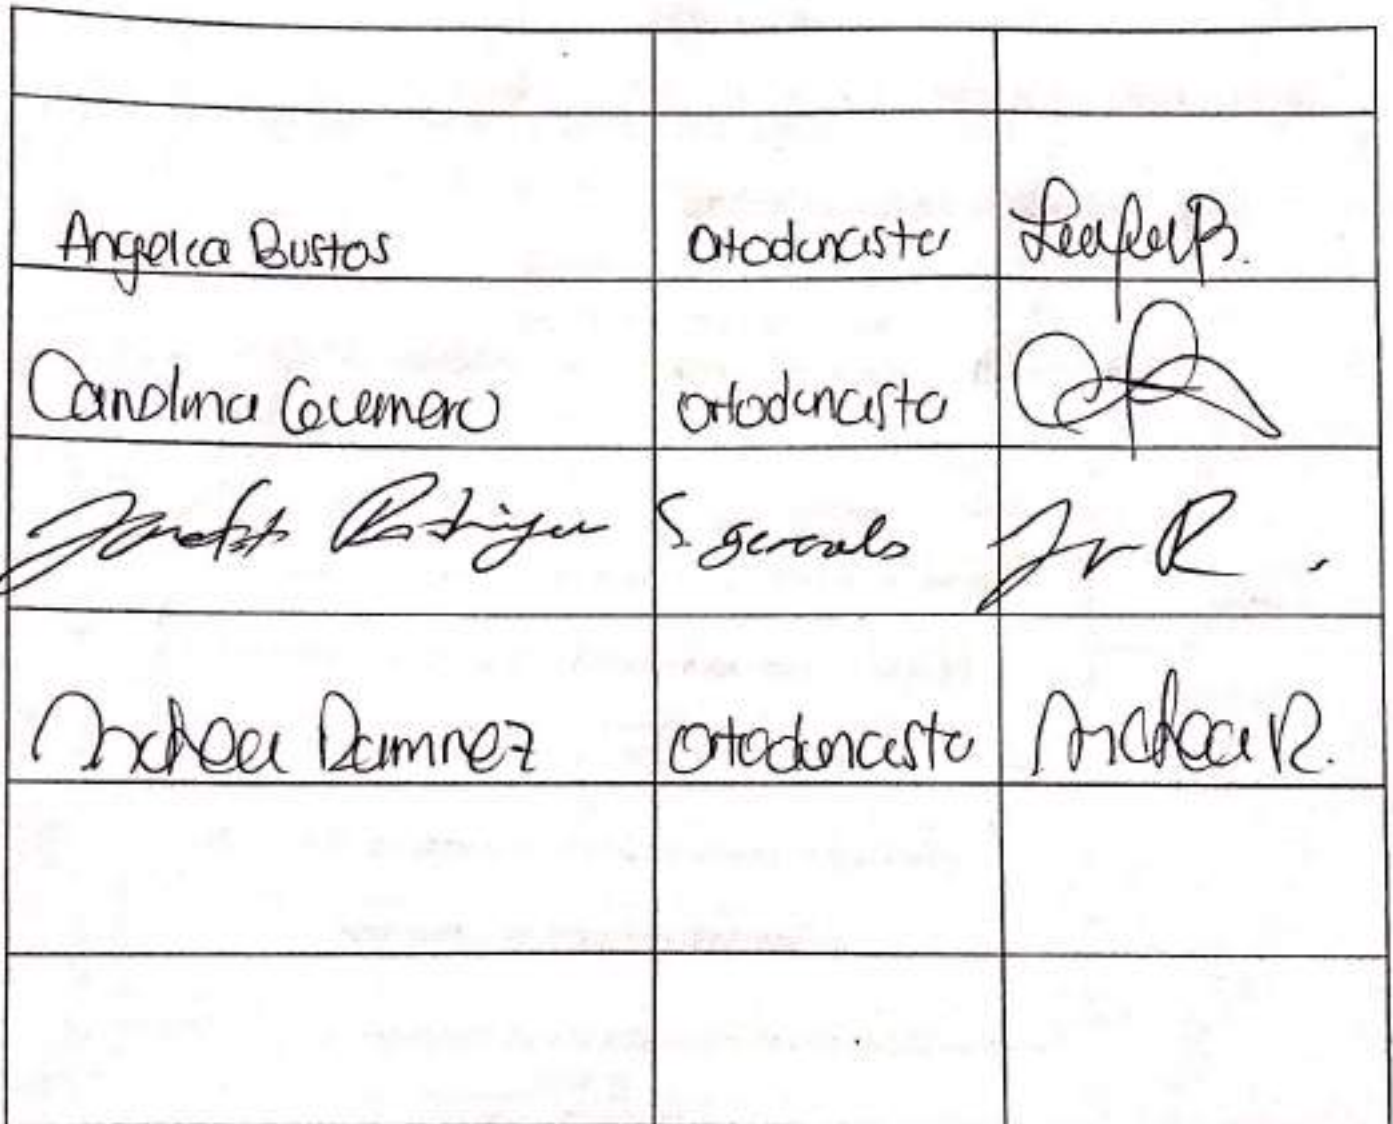 Angelica Bustos Ortodoncista
Carolina Guerrero Ortodoncista
Rodriguez S. generales
Andrea Ramirez Ortodoncista Andrea R.